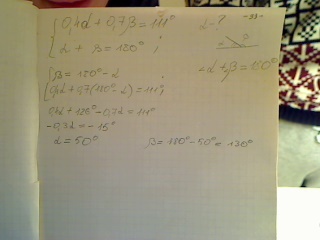 0,4α + 0,7β = 111°
α - ?
α + β = 180° ;
α β
= α + β = 180°
β = 180° - α
0,4α + 0,7(180° - α) = 111° ;
0,4α + 126° - 0,7α = 111°
-0,3α = -15°
α = 50°
β = 180° - 50° = 130°